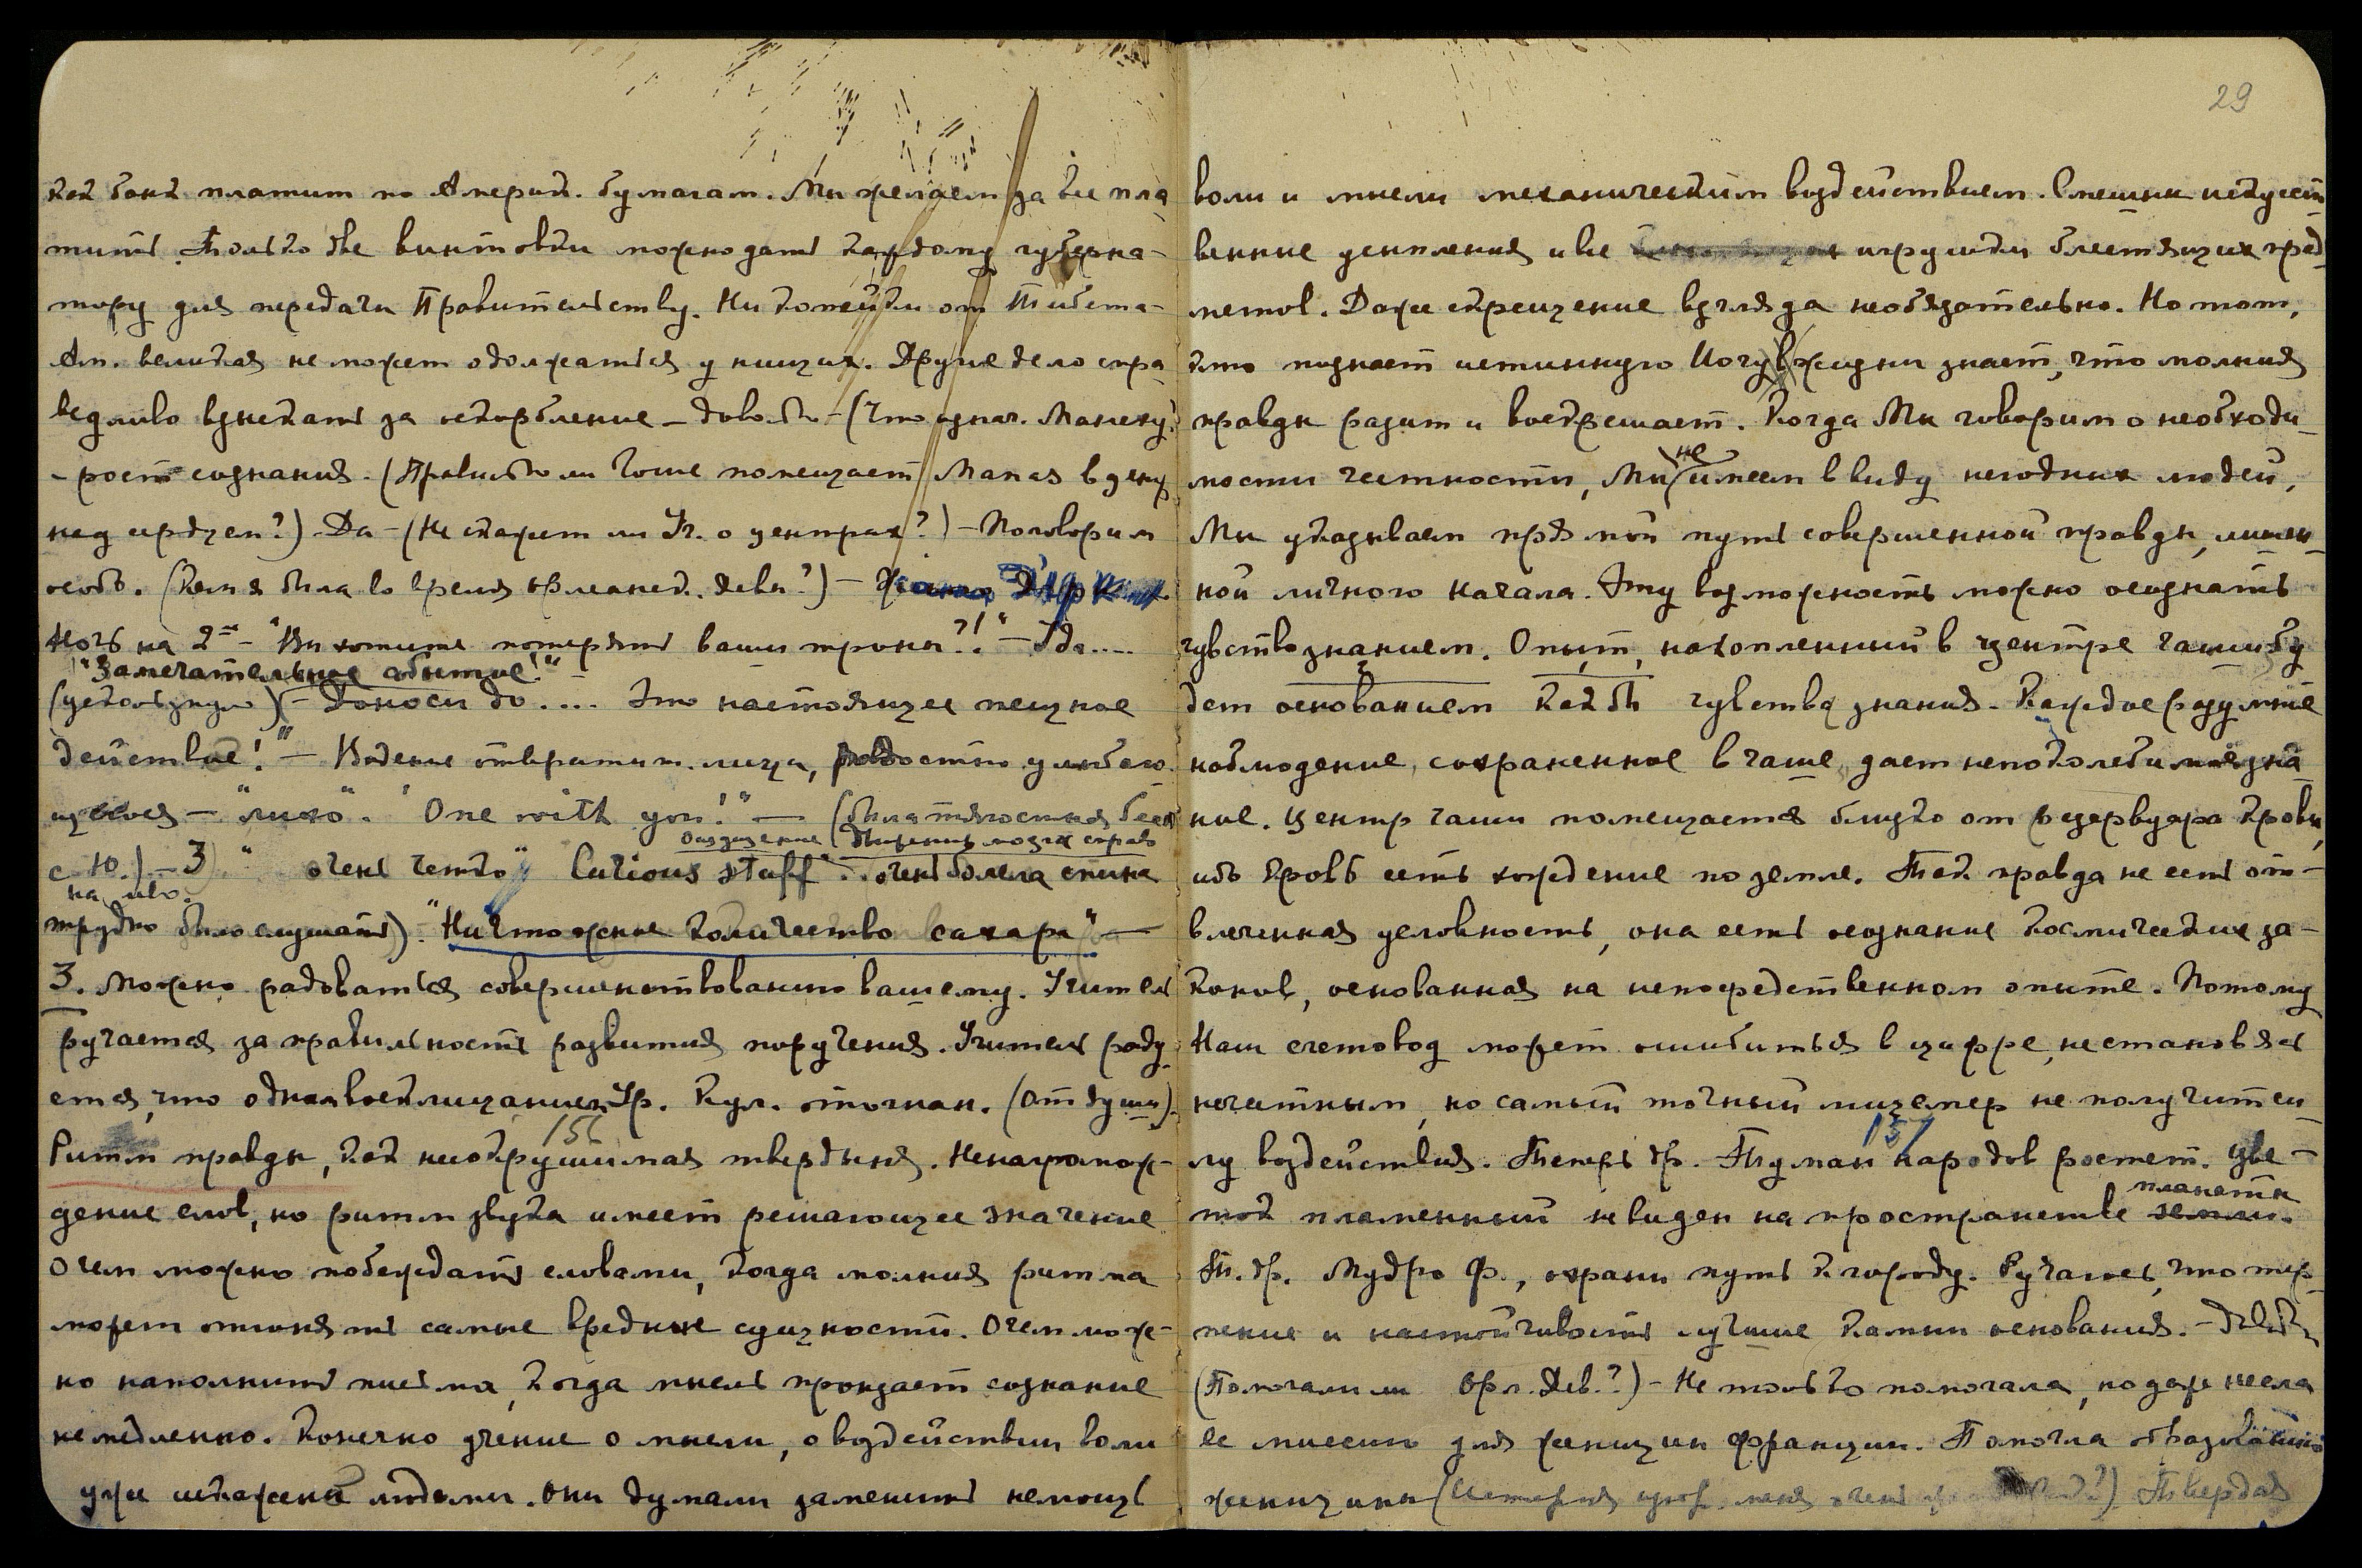 как банк платит по Америк. бумагам. Мы желаем за все пла-
тить. Только две винтовки можно дать каждому губерна-
тору для передачи Правительству. Ни копейки от Тибета-
Ам. великая не может одолжаться у нищих. Другое дело спра-
ведливо взыскать за оскорбление – довольно – (Что означ.
– рост сознания. (Правильно ли помещает Манас в центр
над сердцем?) – Да – (Не скажет ли Уч. о центрах?) – Поговорим
особо. (Кем я была во время Орлеанск. Девы?) –
Ночь на 2ое – "Вы хотите потерять ваши троны?!" – Да....
"Замечательное событие!"
(ускользнуло) – Доноси до.... Это настоящее мощное
действие!" – Видение отвратит. лица, быстро улыбаю-
щегося – "лихо". "One with you!" – (Была тягостная бес.
ощущение (движения мозга справа
с Ю.) – 3) " очень четко" Curious stuff" .. очень болела спина
на лево.
трудно было слушать). "Ничтожное количество сахара" –
3. Можно радоваться совершенствованию вашему. Учитель
ручается за правильность развития поручения. Учитель раду-
ется, что одним восклицанием Ур. Кул. отогнан. (От души).
156
Ритм правды, как несокрушимая твердыня. Не нагромож-
дение слов, но ритм звука имеет решающее значение
О чем можно побеждать словами, когда молния ритма
может отгонять самые вредные сущности. О чем мож-
но наполнить письма, когда мысль пронзает сознание
немедленно. Конечно учение о мысли, о воздействии воли
уже искажено людьми. Они думали заменить немощь
29
воли и мысли механическим воздействием. Смешны искусст-
венные усыпления и все игрушки блестящих пред-
метов. Даже скрещение взгляда необязательно. Но тот,
кто познает истинную Йогу жизни знает, что молния
правды разит и воскрешает. Когда Мы говорим о необходи-
не
мости честности, Мы имеем в виду негодных людей,
Мы указываем прямой путь совершенной правды, лишен-
ной личного начала. Эту возможность можно осознать
чувствознанием. Опыт, накопленный в центре чаши бу-
дет основанием как бы чувства знания. Каждое разумное
наблюдение, сохраненное в чаше, дает непоколебимое зна-
ние. Центр чаши помещается близко от резервуара крови,
ибо кровь есть хождение по земле. Так правда не есть от-
влеченная условность, она есть осознание космических за-
конов, основанная на непосредственном опыте. Потому
Наш счетовод может ошибиться в цифре, не становясь
нечестным, но самый точный лицемер не получит си-
157
лу воздействия. Теперь др. Туман народов растет. Цве-
планеты
ток пламенный невиден на пространстве земли.
Т. др. Мудро Ф., охрани путь к городу. Ручаюсь, что тер-
пение и настойчивость лучшие камни основания. – Довольно
(Помогали ли Орл. Дев.?) – Не только помогала, но даже несла
ее миссию для женщин Франции. Помогла образованию
женщины (История меня очень ) Твердая